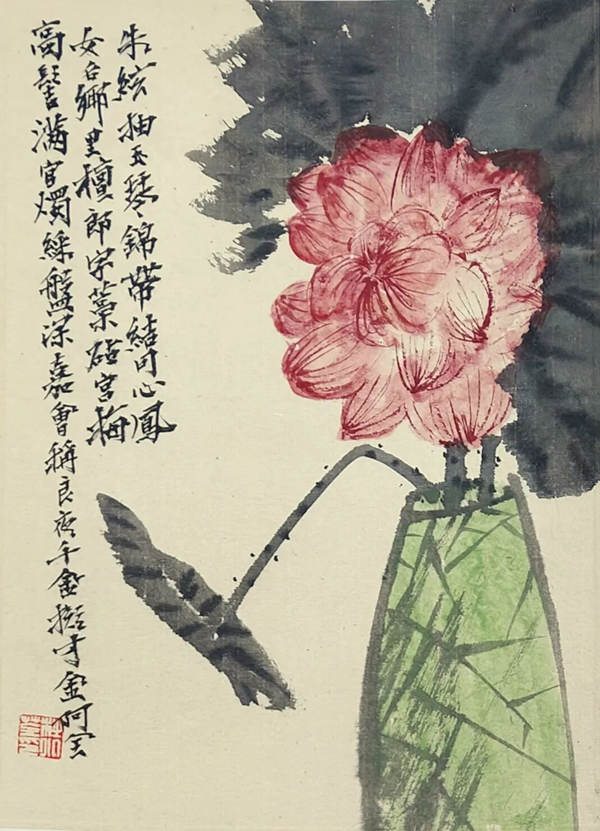 朱絃抽玉琴錦帶結同心鳳
女名鄉里檀郎字藁砧宮梅
高髻滿官燭綵盤深嘉會稱良夜千金擬寸金阿